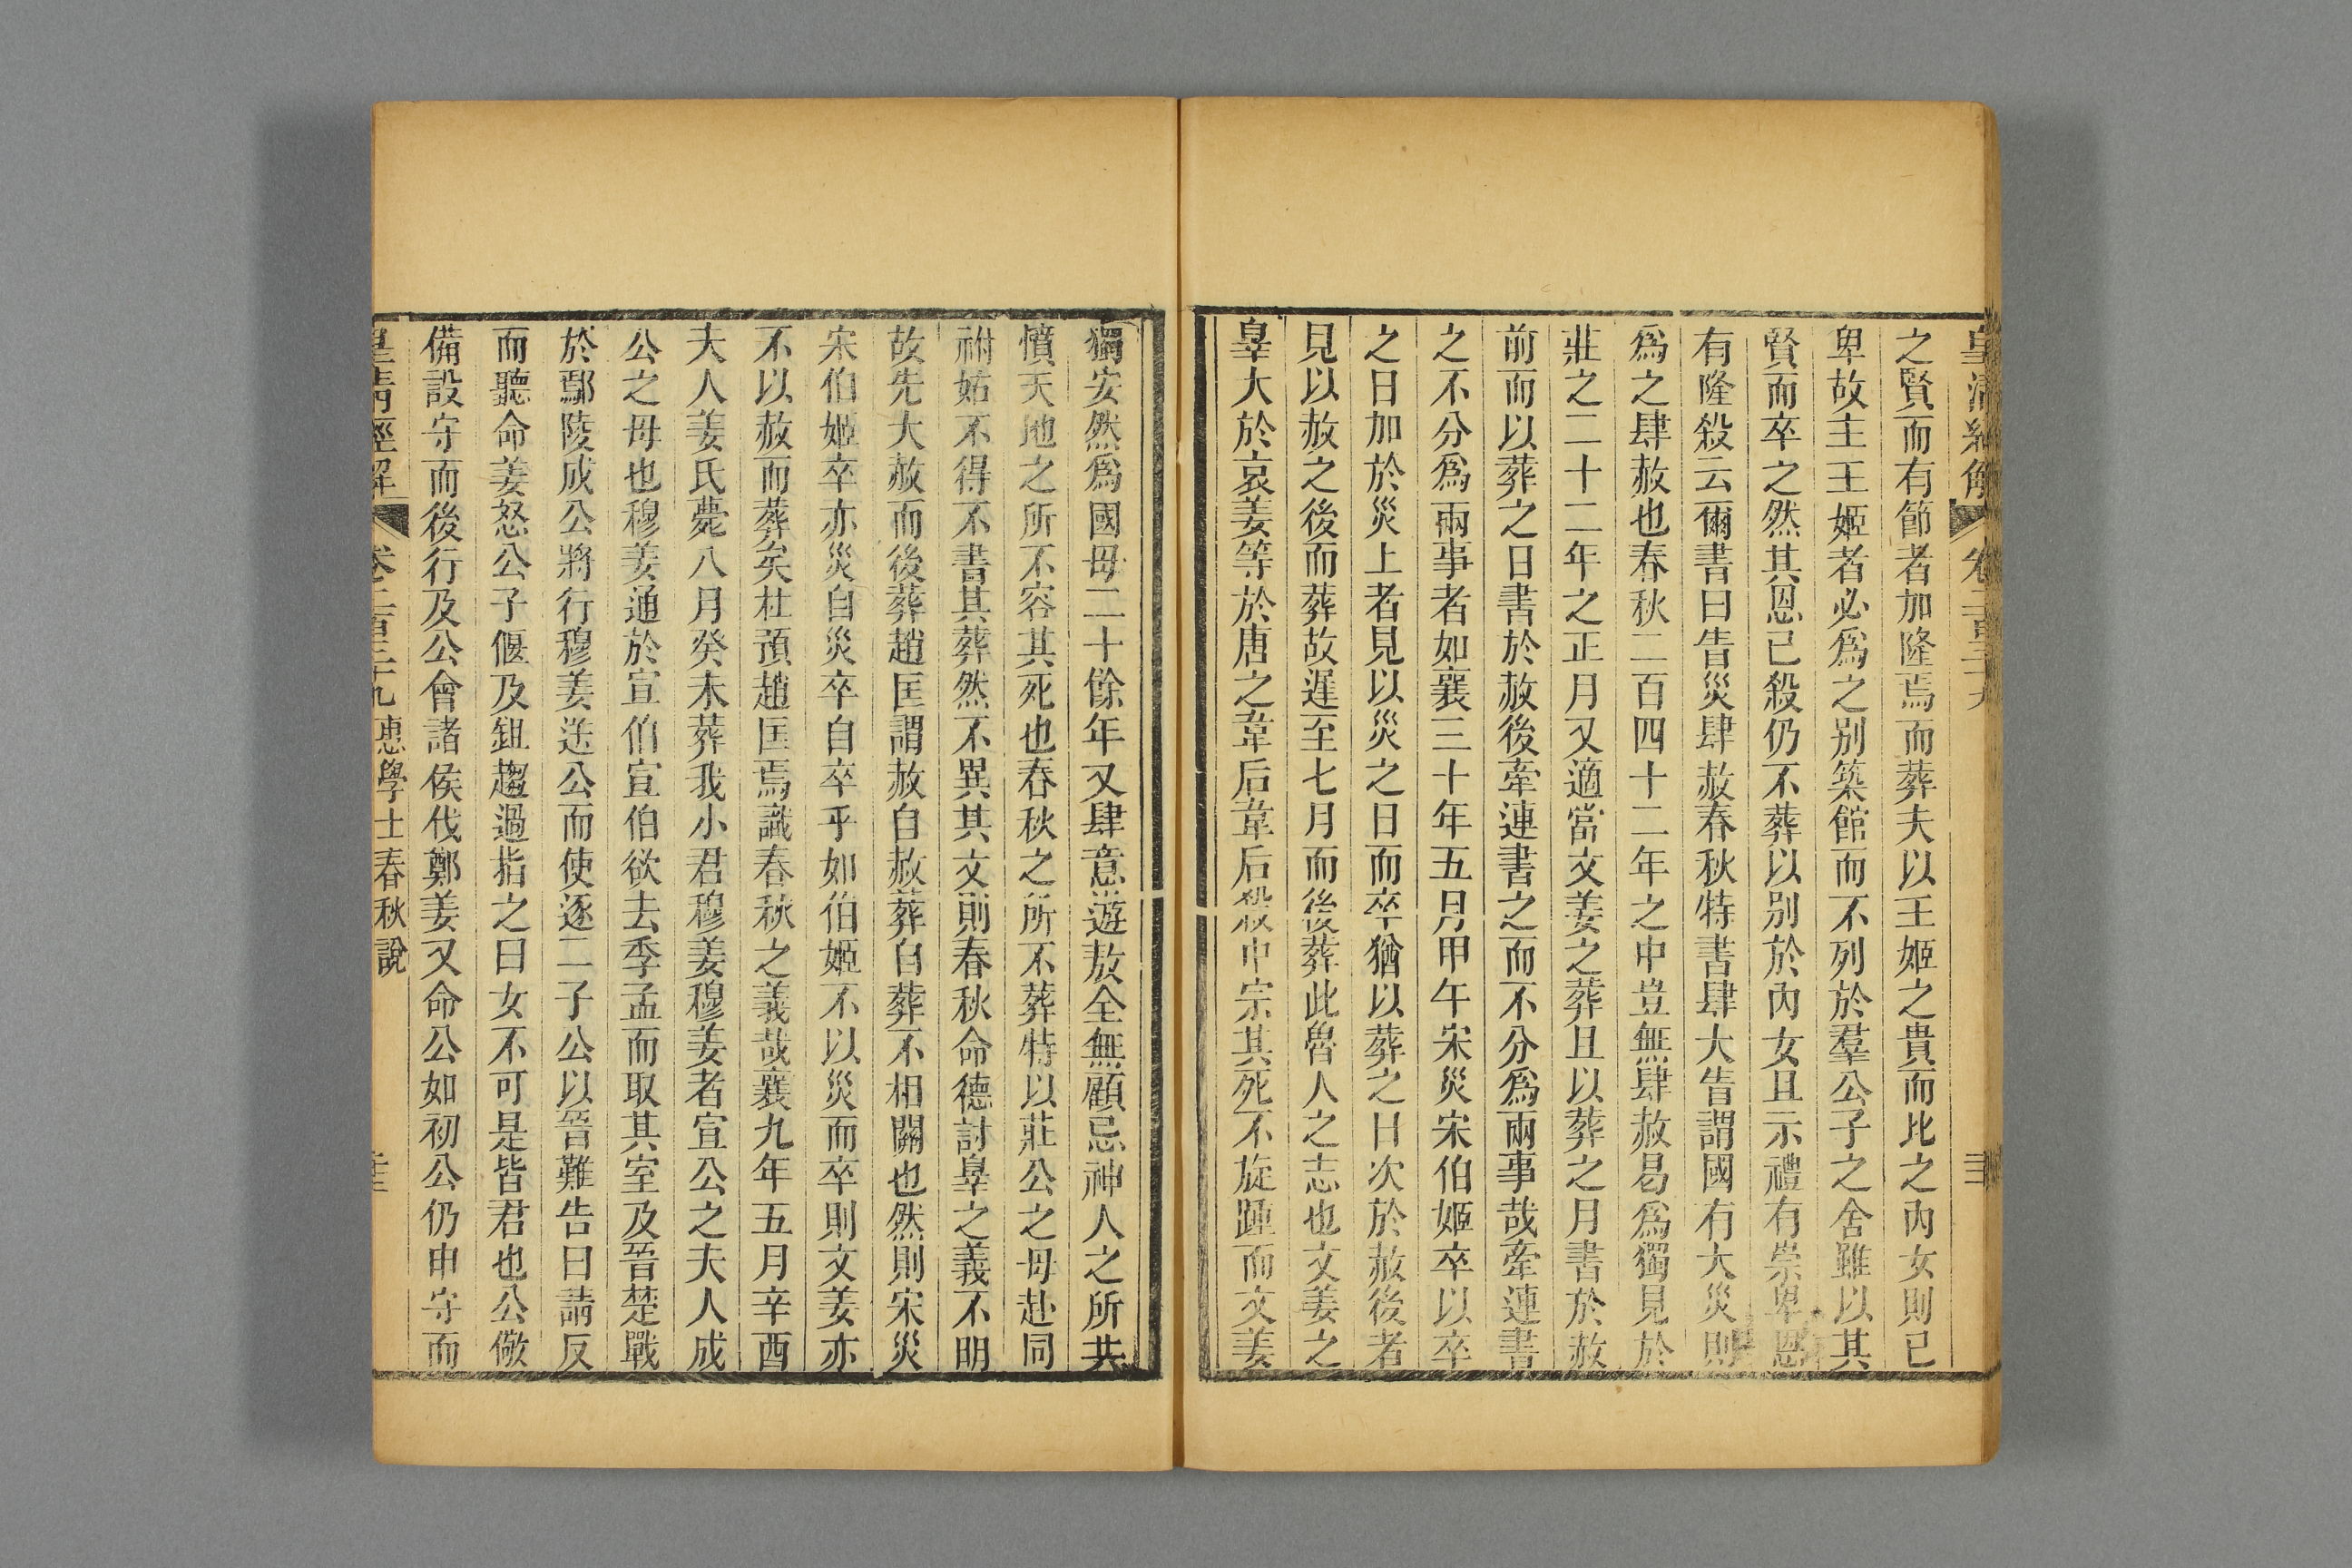 皇清經解 卷二百三十九
之賢而有節者加隆焉而葬夫以王姬之貴而比之內女則已
卑故主王姬者必爲之別築館而不列於羣公子之舍雖以其
賢而卒之然其恩已殺仍不葬以別於內女且示禮有崇卑恩
有隆殺云爾書曰眚災肆赦春秋特書肆大眚謂國有大災則
爲之肆赦也春秋二百四十二年之中豈無肆赦曷爲獨見於
莊之二十二年之正月又適當文姜之葬且以葬之月書於赦
前而以葬之日書於赦後牽連書之而不分爲兩事哉牽連書
之不分爲兩事者如襄三十年五月甲午宋災宋伯姬卒以卒
之日加於災上者見以災之日而卒猶以葬之日次於赦後者
見以赦之後而葬故遲至七月而後葬此魯人之志也文姜之
辠大於哀姜等於唐之韋后韋后殺中宗其死不旋踵而文姜
獨安然爲國母二十餘年又肆意遊敖全無顧忌神人之所共
憤天地之所不容其死也春秋之所不葬特以莊公之母赴同
祔姑不得不書其葬然不異其文則春秋命德討辠之義不明
故先大赦而後葬趙匡謂赦自赦葬自葬不相關也然則宋災
宋伯姬卒亦災自災卒自卒乎如伯姬不以災而卒則文姜亦
不以赦而葬矣杜預趙匡焉識春秋之義哉襄九年五月辛酉
夫人姜氏薨八月癸未葬我小君穆姜穆姜者宣公之夫人成
公之母也穆姜通於宣伯宣伯欲去季孟而取其室及晉楚戰
於鄢陵成公將行穆姜送公而使逐二子公以晉難告曰請反
而聽命姜怒公子偃及鉏趨過指之曰女不可是皆君也公儆
備設守而後行及公會諸侯伐鄭姜又命公如初公仍申守而
皇清經解 卷二百三十九 惠學士春秋說